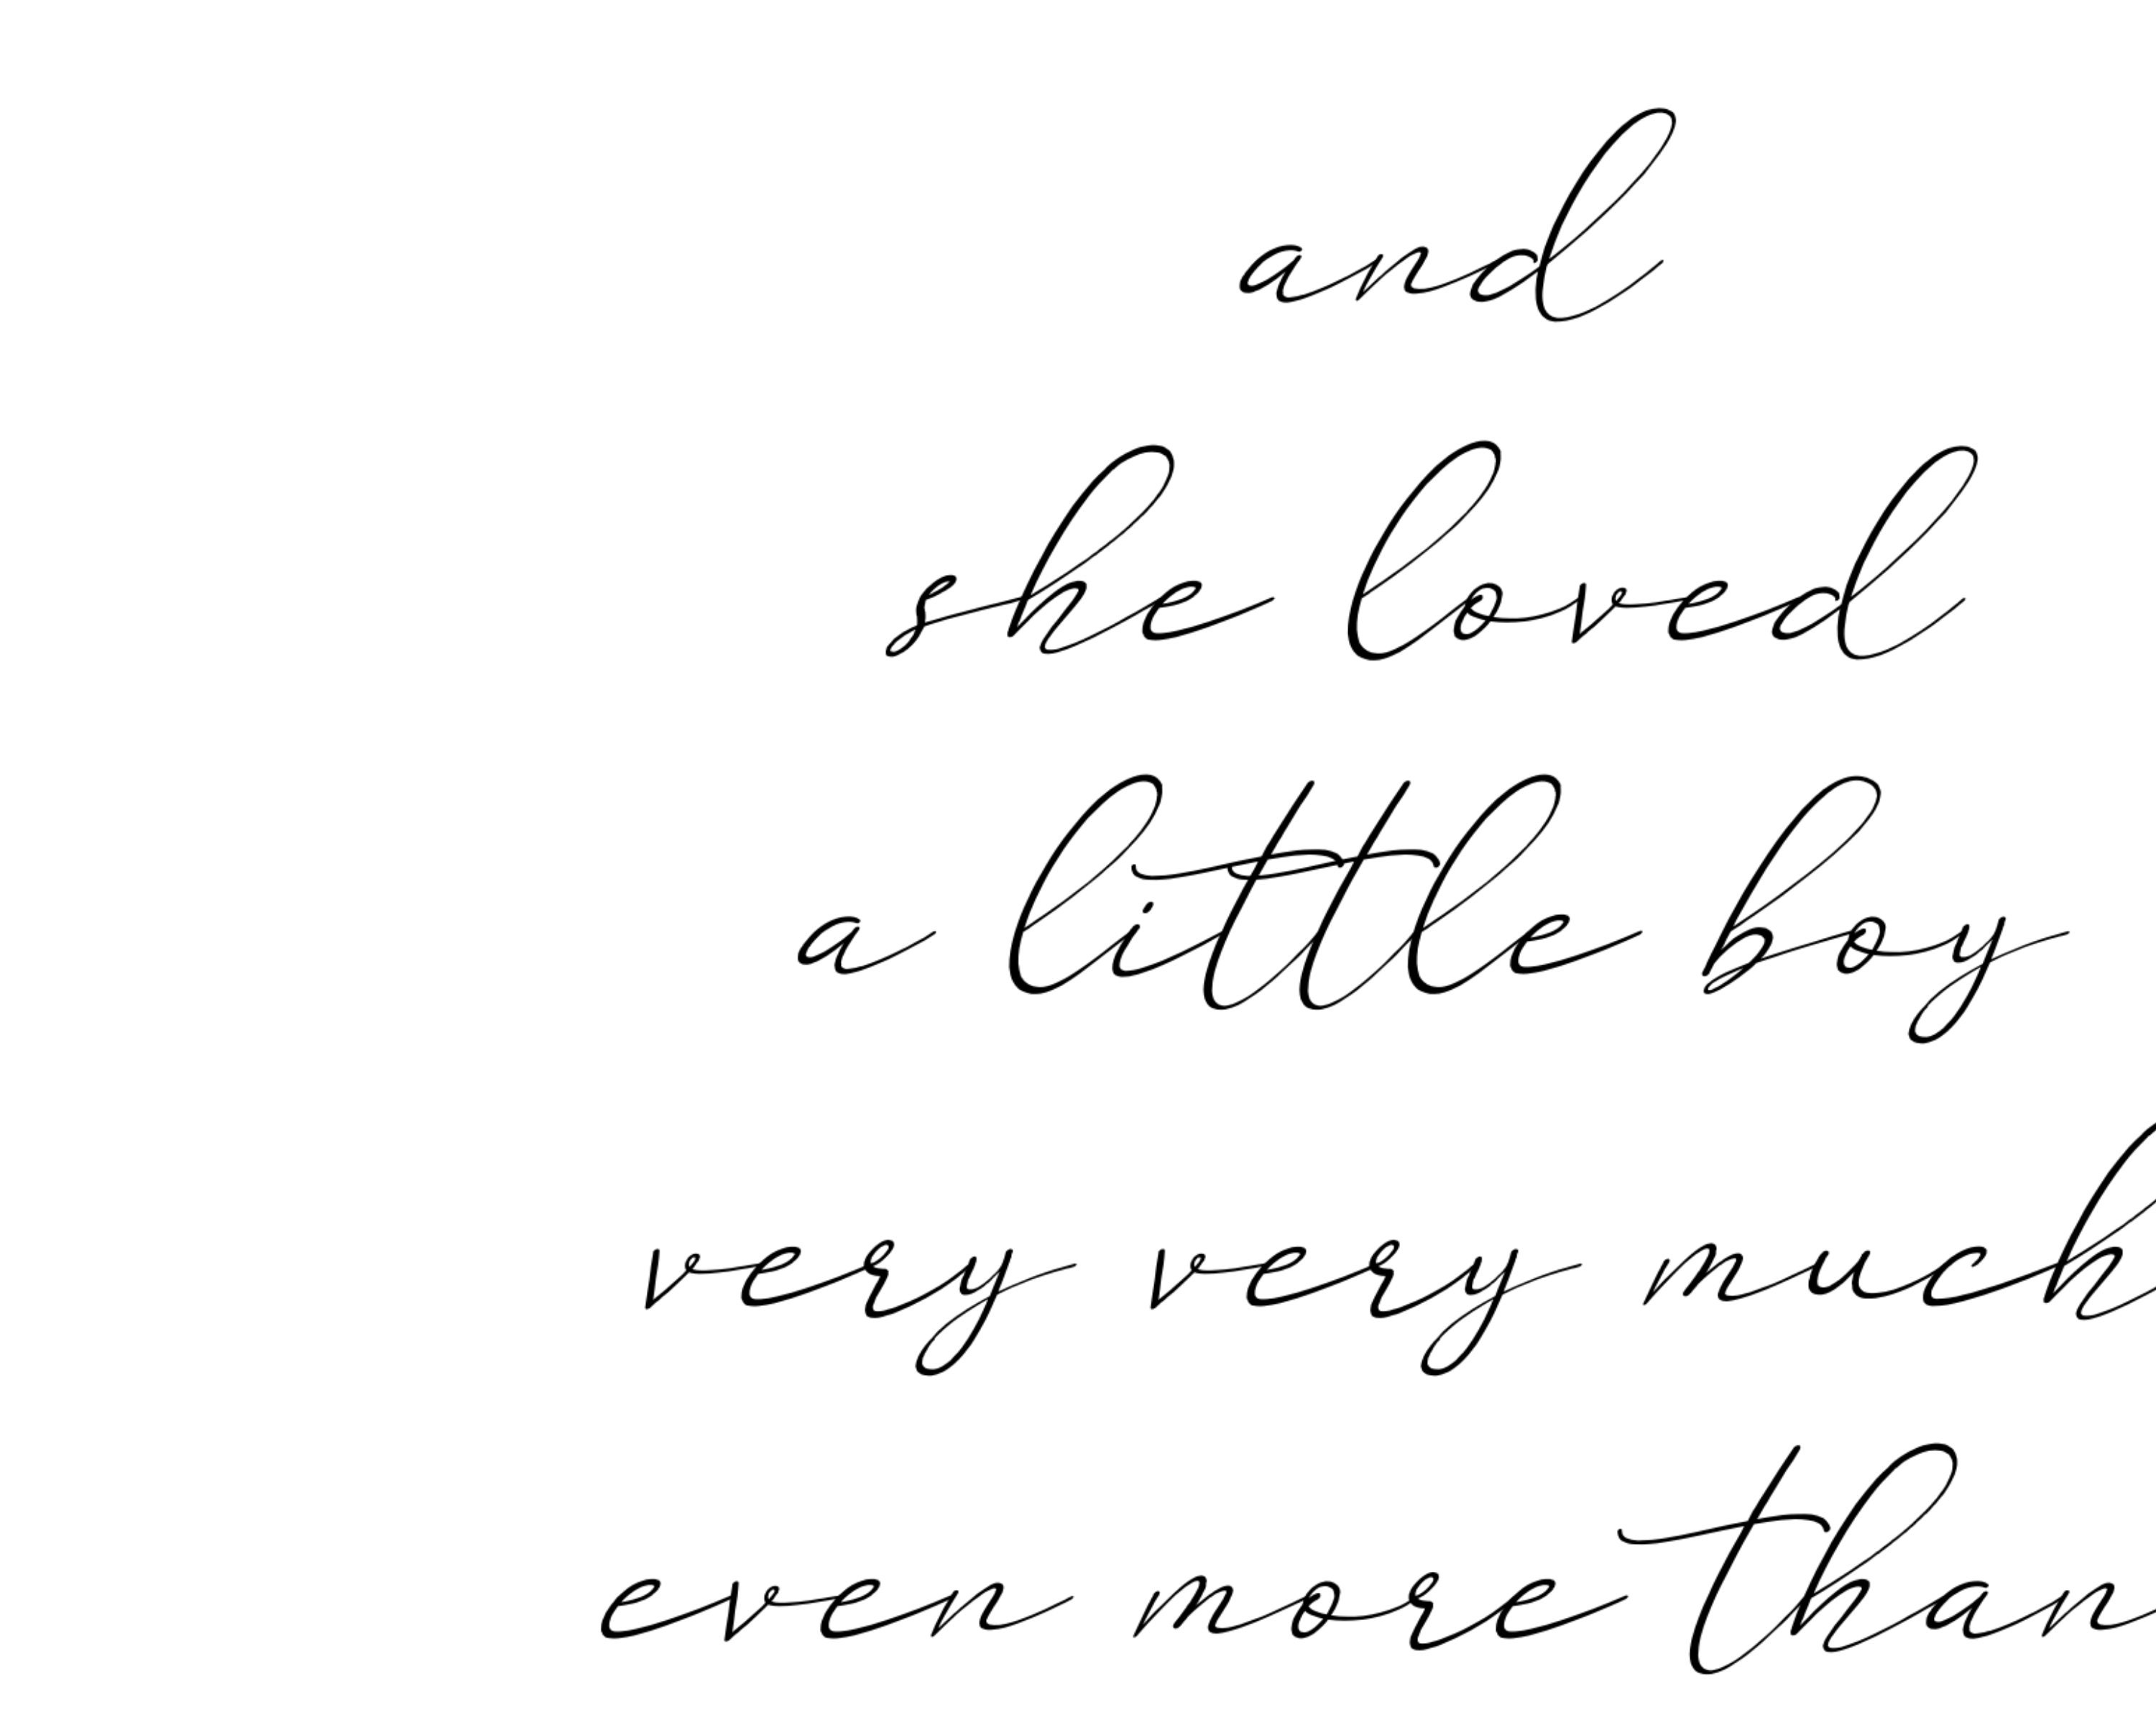 and
she loved
a little boy
very very much
even more than